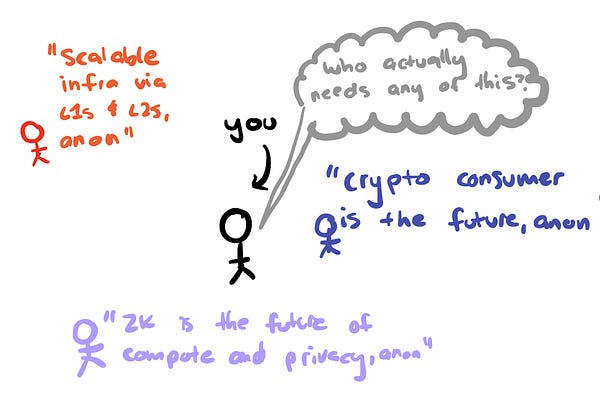 "Scalable
infra via
L1s & L2s,
anon"
you
who actually
needs any of this?
"crypto consumer
is the future, anon
"ZK is the future of
compute and privacy, anon"